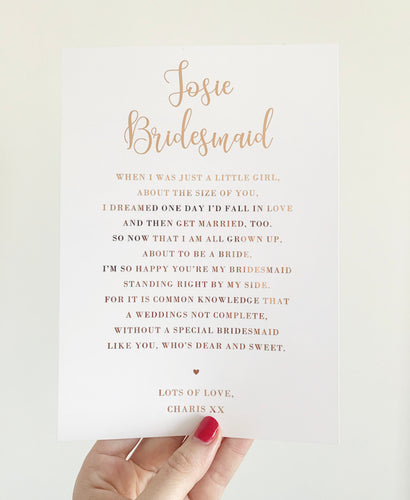 Josie
Bridesmaid
WHEN I WAS JUST A LITTLE GIRL,
ABOUT THE SIZE OF YOU,
I DREAMED ONE DAY I'D FALL IN LOVE
AND THEN GET MARRIED, TOO.
SO NOW THAT I AM ALL GROWN UP,
ABOUT TO BE A BRIDE,
I'M SO HAPPY YOU'RE MY BRIDESMAID
STANDING RIGHT BY MY SIDE.
FOR IT IS COMMON KNOWLEDGE THAT
A WEDDINGS NOT COMPLETE,
WITHOUT A SPECIAL BRIDESMAID
LIKE YOU, WHO'S DEAR AND SWEET.
LOTS OF LOVE,
CHARIS XX